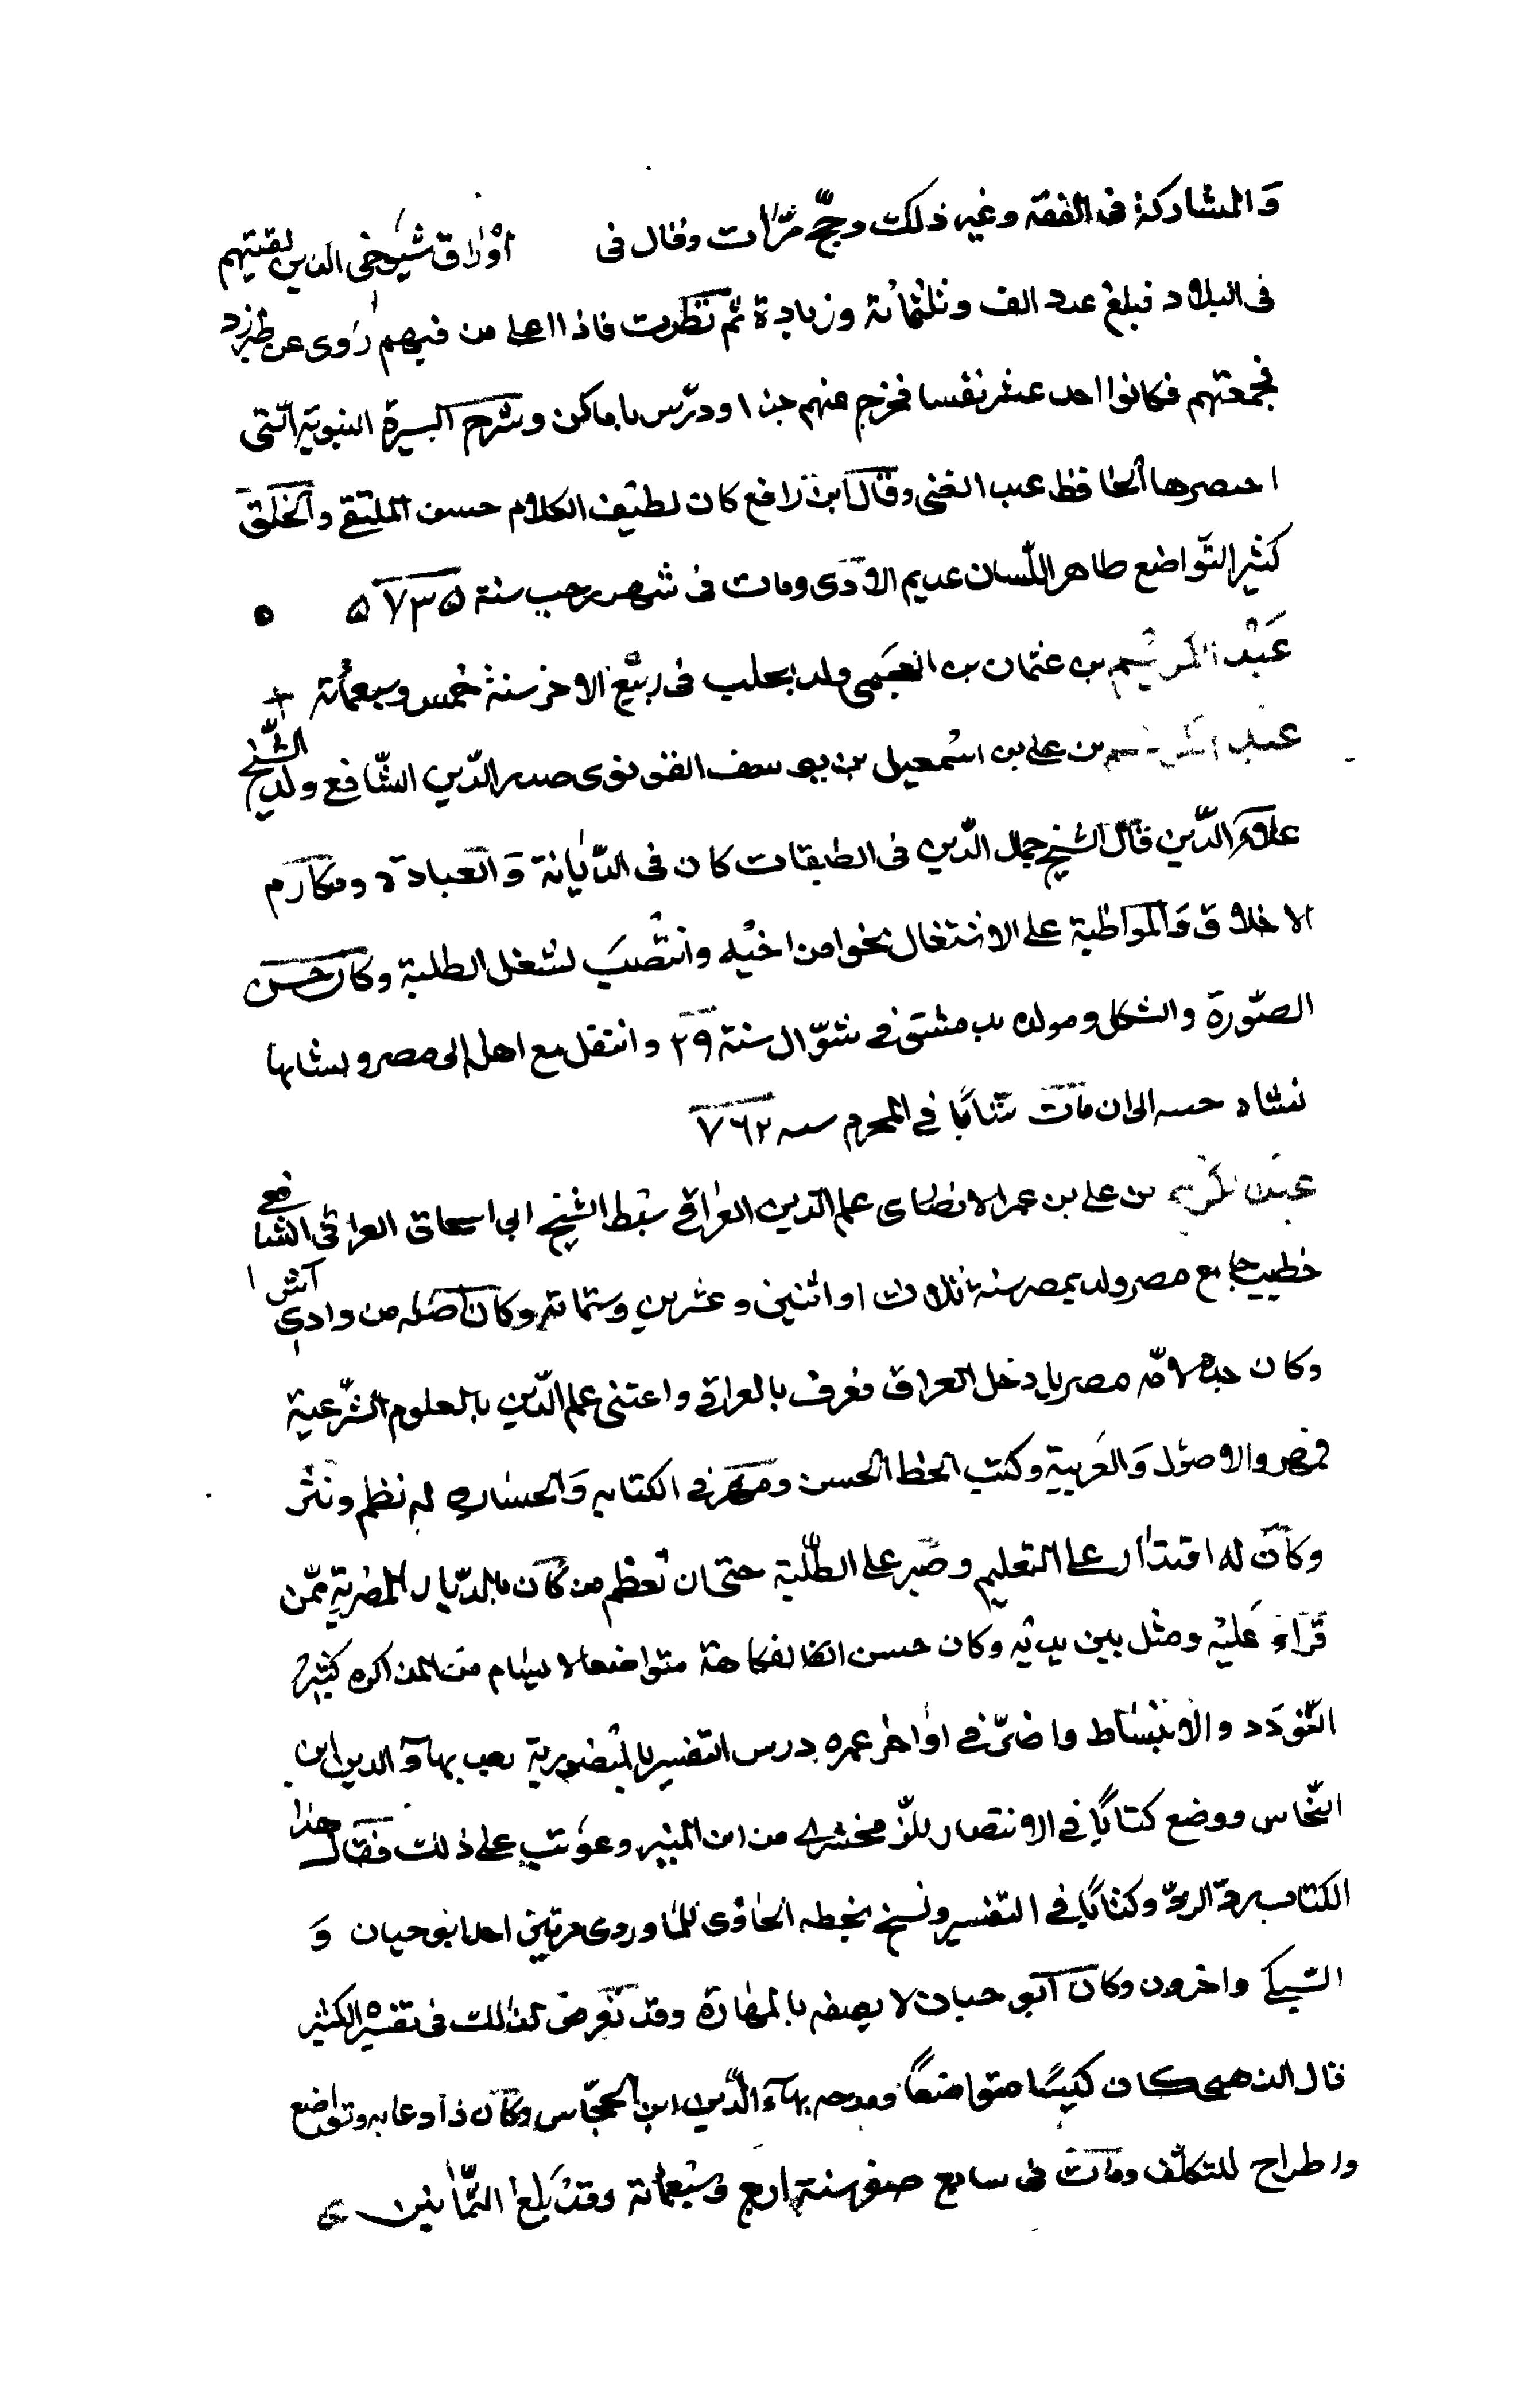 والمشاركة فى الفقه وغير ذلك وحجّ مرّات وقال فى اوراق شيوخى الذين لقيتهم
فى البلاد فبلغ عدد الف وثلثمائة وزيادة ثم نظرت فاذا اعلى من فيهم روى عن طبرزد
فجمعتهم فكانوا احد عشر نفسا فخرج عنهم جزءا ودرّس باماكن وشرح السيرة النبوية الّتى
اختصرها الحافظ عبد الغنى وقال ابن رافع كان لطيف الكلام حسن الملتقى والخلق
كثير التّواضع طاهر اللّسان عديم الاذى ومات فى شهر رجب سنة ٧٣٥
عبد الكريم بن عثمان بن العجمى ولد بحلب فى ربيع الاخر سنة خمس وسبعمائة
عبد الكريم بن على بن اسمعيل بن يوسف القونوى صدر الدّين الشّافعى ولد الشّيخ
علاء الدّين قال الشيخ جمال الدّين فى الطبقات كان فى الدّيانة والعبادة ومكارم
الاخلاق والمواظبة على الاشتغال نحوا من اخيه وانتصب لشغل الطلبة وكان حسن
الصّورة والشكل ومولده بدمشق فى شوّال سنة ٢٩ وانتقل مع اهله الى مصر ونشا بها
نشاة حسنة الى ان مات شابًا فى المحرم سنة ٧٦٢
عبد الكريم بن على بن عمر الانصارى علم الدين العراقى سبط الشيخ ابى اسحاق العراقى الشافعى
خطيب جامع مصر ولد بمصر سنة ثلاث او اثنين وعشرين وستمائة وكان اصله من وادى آش
وكان جده لامّه مصريا دخل العراق فعرف بالعراقى واعتنى علم الدّين بالعلوم الشّرعية
فمهر والاصول والعربية وكتب الخط الحسن ومهر فى الكتابه والحساب له نظم ونثر
وكان له اقتدار على التعليم وصبر على الطّلبة حتى ان معظم من كان بالدّيار المصرية ممّن
قراء عليه ومثل بين يديه وكان حسن الفكاهة متواضعا لا يسام من المذاكره كثير
التّودد والانبساط واضرّ فى اواخر عمره درس التفسير بالمنصورية بعد بهاء الدين ابن
النّحاس ووضع كتابًا فى الانتصار للزّمخشرى من ابن المنير وعوتب على ذلك فقال هذا
الكتاب بردّ الردّ وكتابًا فى التفسير ونسخ بخطه الحاوى للماوردى مرتين ابو حيان و
السّبكى واخرون وكان ابو حيان لا يصفه بالمهارة وقد تعرض لذلك فى تفسيره الكثير
قال الذهبى كان كيسًا متواضعاً ومدحه بهاء الدّين ابن وكان ذا دعابه وتواضع
واطراح للتكلّف ومات فى سابع صفر سنة اربع وسبعمائة وقد بلغ الثّمانين